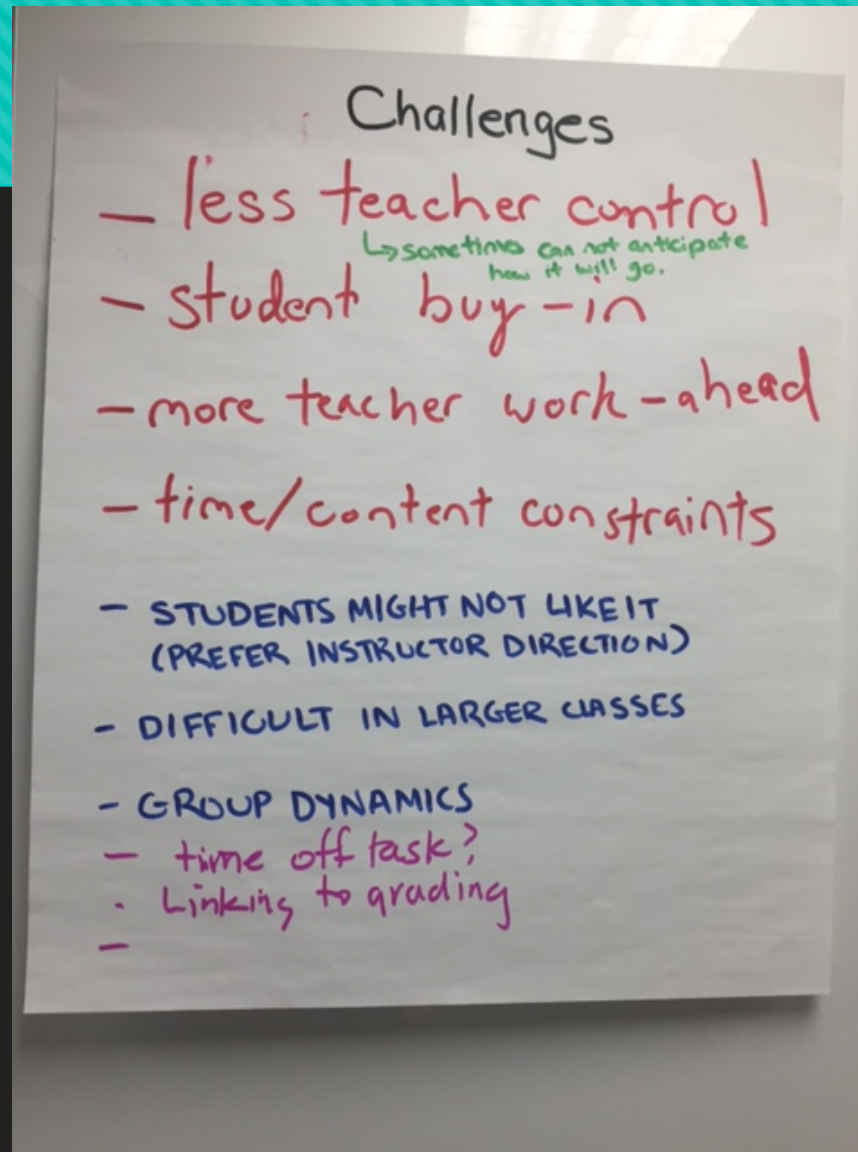 Challenges
- less teacher control
↳ sometimes can not anticipate
how it will go.
- student buy-in
- more teacher work-ahead
- time/content constraints
- STUDENTS MIGHT NOT LIKE IT
(PREFER INSTRUCTOR DIRECTION)
- DIFFICULT IN LARGER CLASSES
- GROUP DYNAMICS
- time off task?
- Linking to grading
-